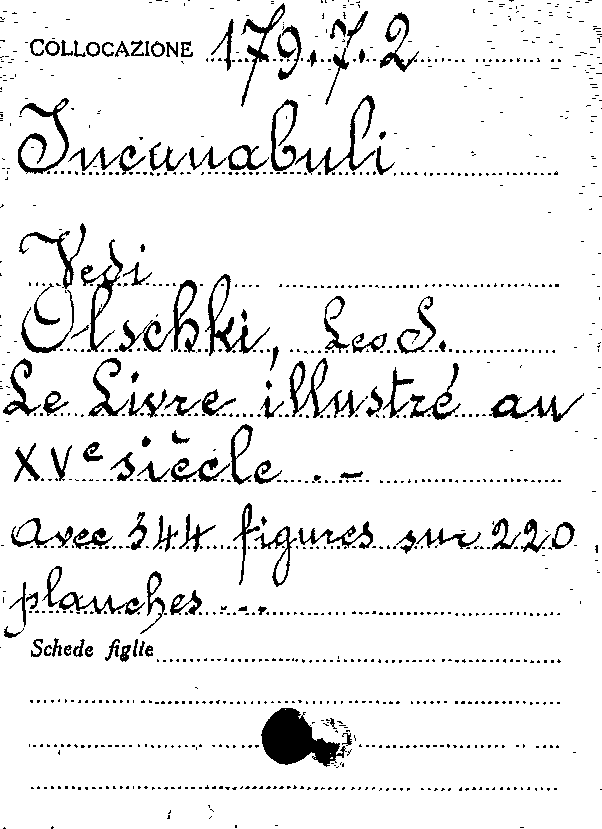 COLLOCAZIONE 179.7.2
Incunabuli
Vedi
Olschki, Leo S.
Le Livre illustré au
XVe siècle . –
avec 344 figures sur 220
planches ...
Schede figlie